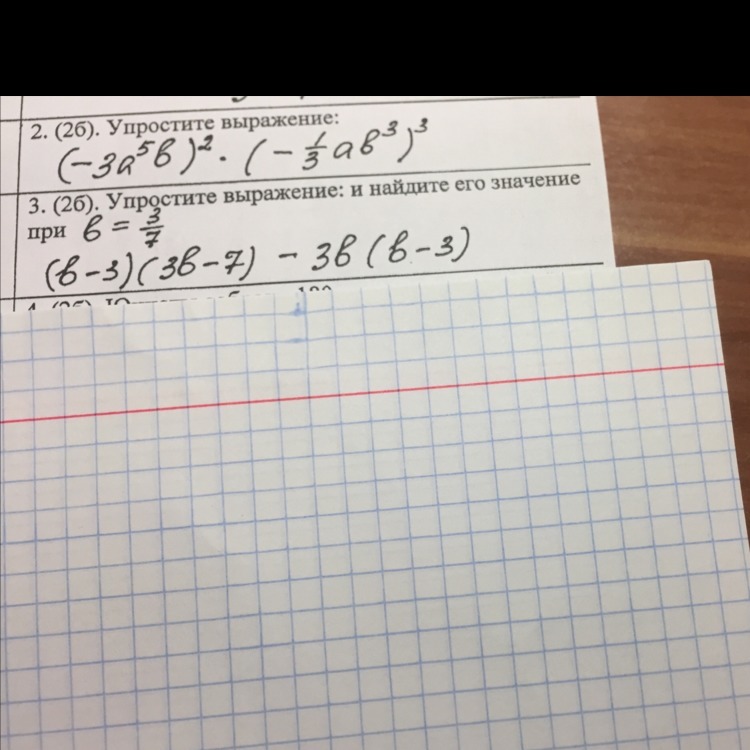 2. (2б). Упростите выражение:
(-3a⁵в)² · (-⅓ aв³)³
3. (2б). Упростите выражение: и найдите его значение
при в = 3/7
(в-3)(3в-7) - 3в(в-3)